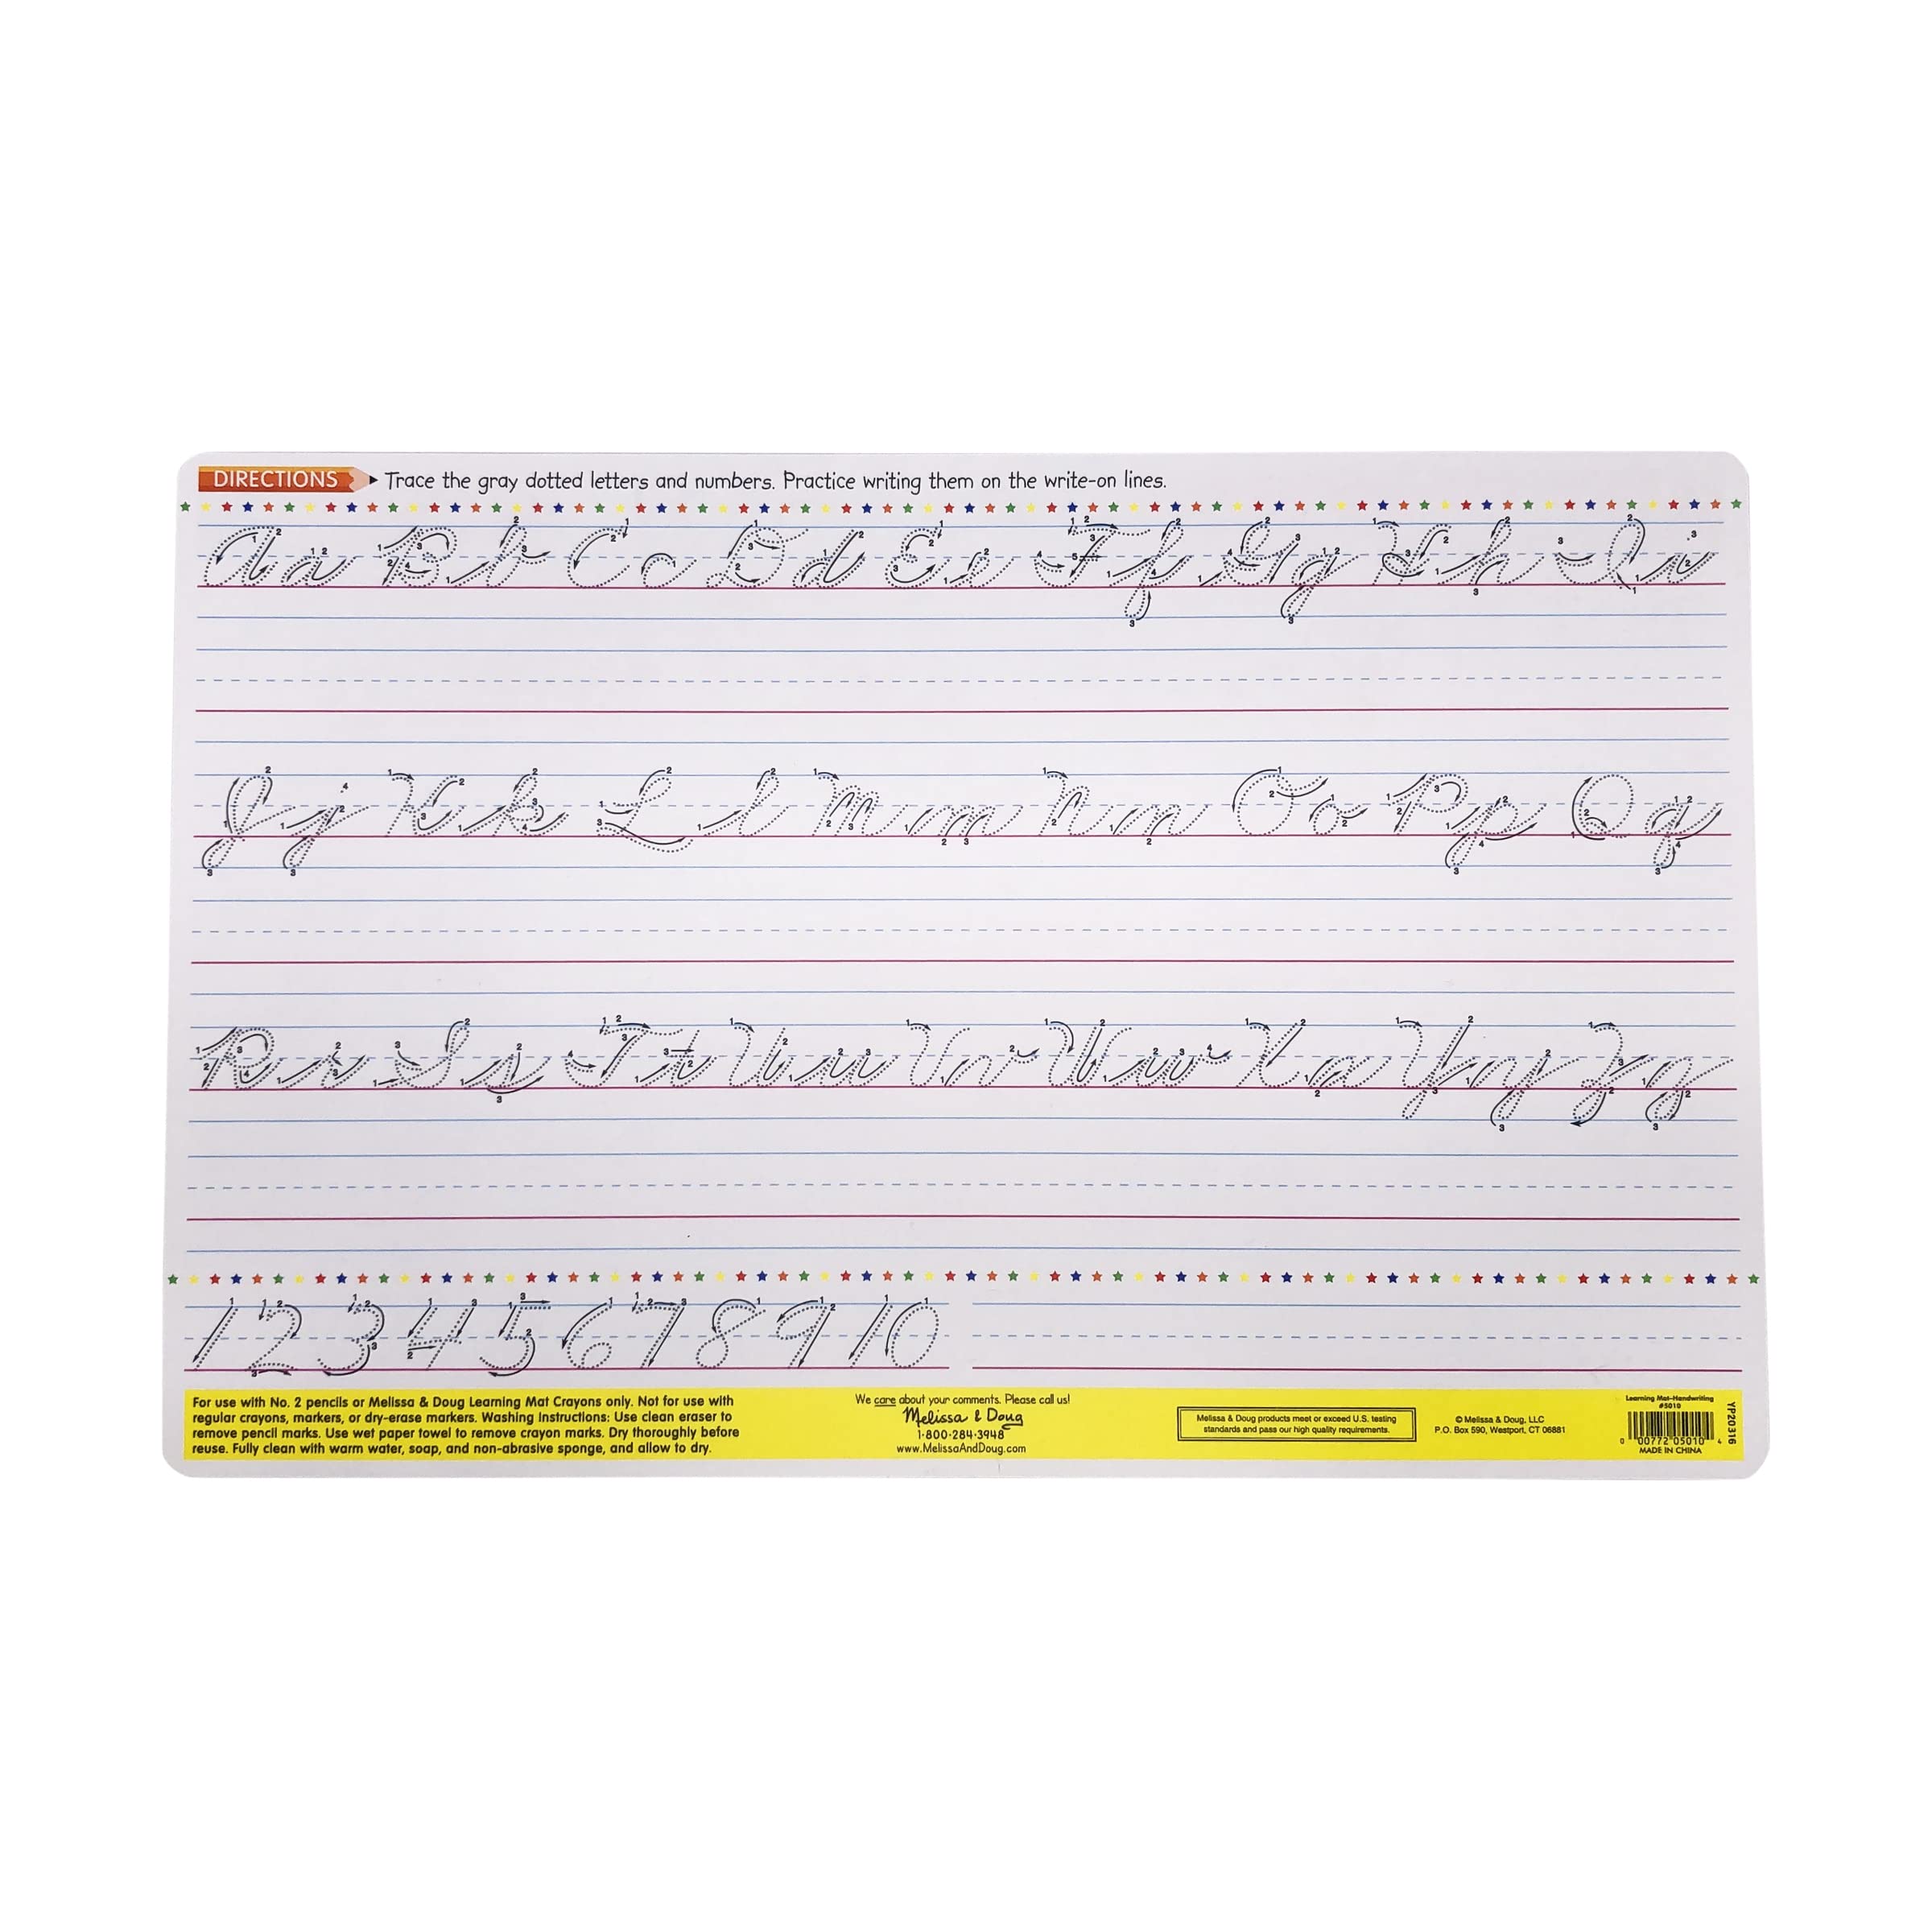 DIRECTIONS Trace the gray dotted letters and numbers. Practice writing them on the write-on lines.
Aa Bb Cc Dd Ee Ff Gg Hh Ii
Jj Kk Ll Mm Nn Oo Pp Qq
Rr Ss Tt Uu Vv Ww Xx Yy Zz
1 2 3 4 5 6 7 8 9 10
For use with No. 2 pencils or Melissa & Doug Learning Mat Crayons only. Not for use with
regular crayons, markers, or dry-erase markers. Washing Instructions: Use clean eraser to
remove pencil marks. Use wet paper towel to remove crayon marks. Dry thoroughly before
reuse. Fully clean with warm water, soap, and non-abrasive sponge, and allow to dry.
We care about your comments. Please call us!
Melissa & Doug
1·800·284·3948
www.MelissaAndDoug.com
Melissa & Doug products meet or exceed U.S. testing
standards and pass our high quality requirements.
© Melissa & Doug, LLC
P.O. Box 590, Westport, CT 06881
Learning Mat-Handwriting
#5010
0 00772 05010 4
MADE IN CHINA
YP20316